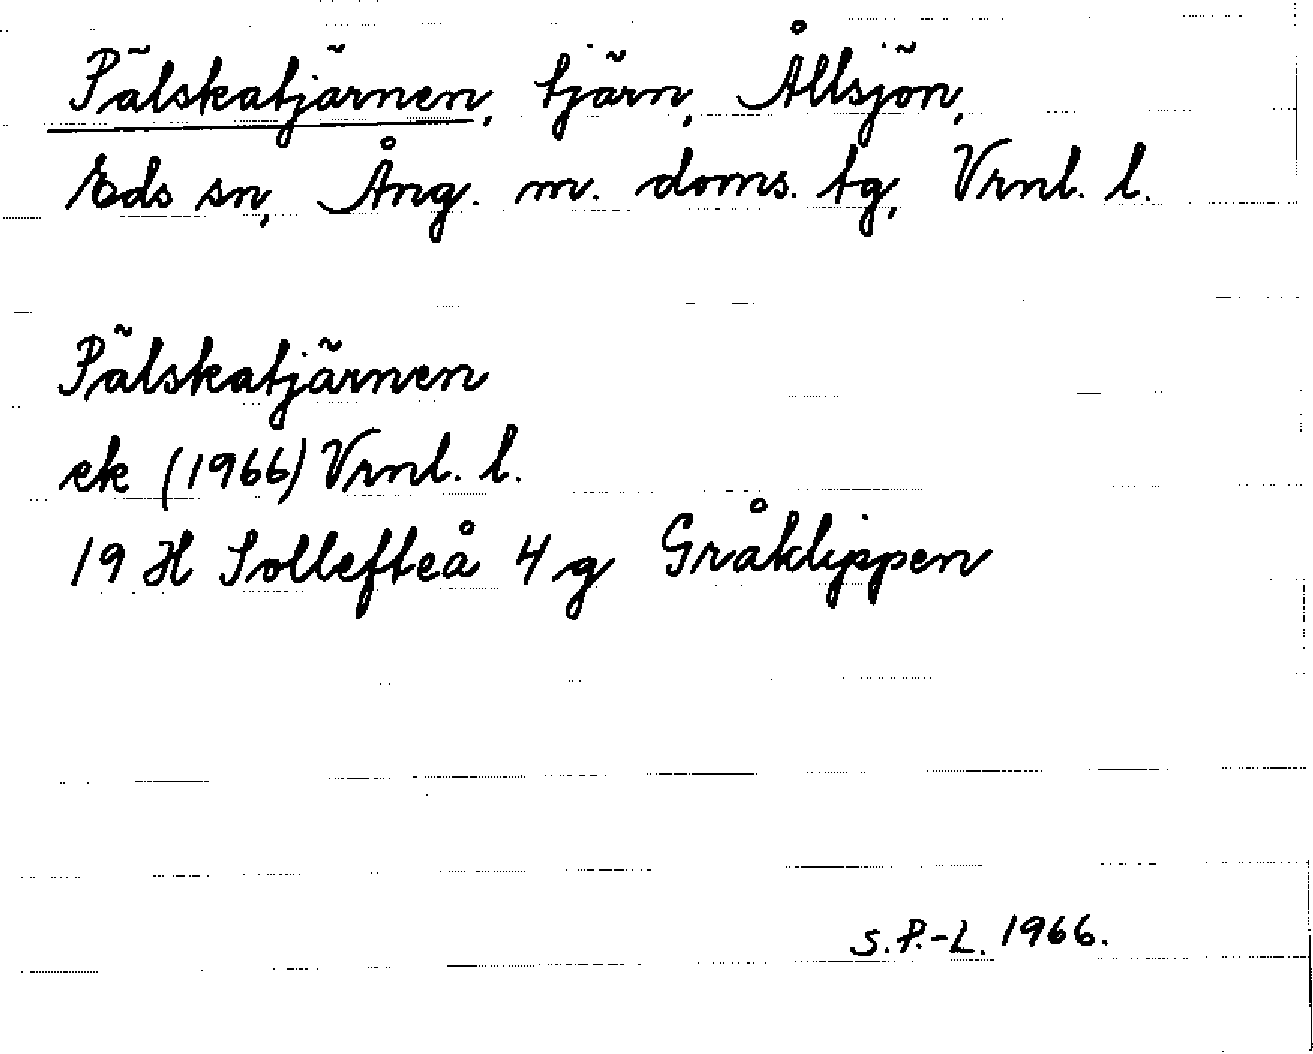 Pälskatjärnen, tjärn, Ållsjön,
Eds sn, Ång. m. doms. tg, Vrnl. l.
Pälskatjärnen
ek (1966) Vrnl. l.
19 H Sollefteå 4 g Gråklippen
S.P.-L. 1966.